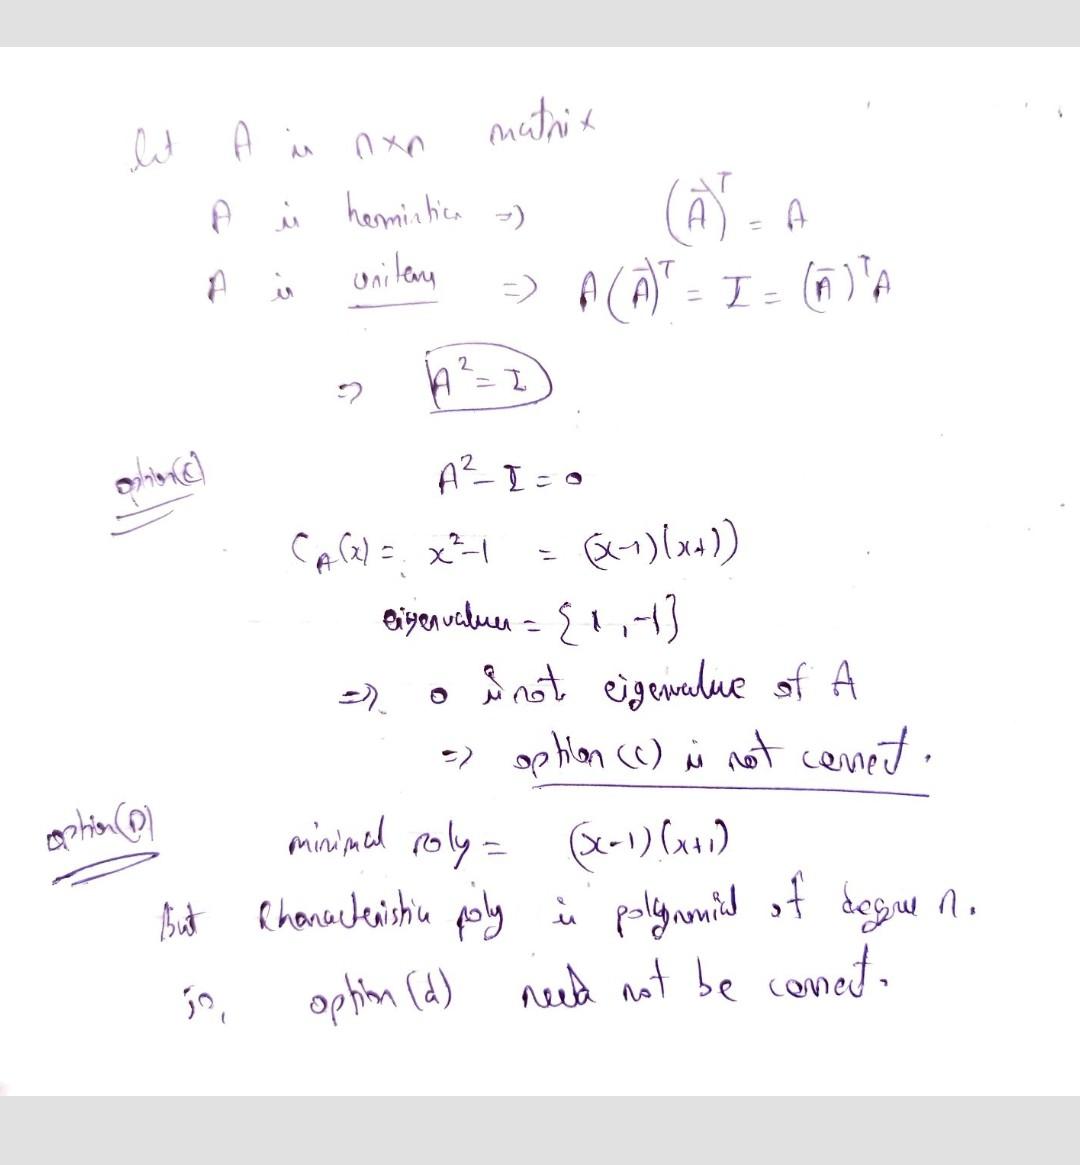 let A is n×n matrix
A is hermitian ⇒ (Ā)ᵀ = A
A is unitary ⇒ A(Ā)ᵀ = I = (Ā)ᵀA
⇒ A² = I
option(C) A² - I = 0
C_A(x) = x²-1 = (x-1)(x+1)
eigenvalues = {1, -1}
⇒ 0 is not eigenvalue of A
⇒ option (c) is not correct.
option(D) minimal poly = (x-1)(x+1)
But Characteristic poly is polynomial of degree n.
so, option (d) need not be correct.